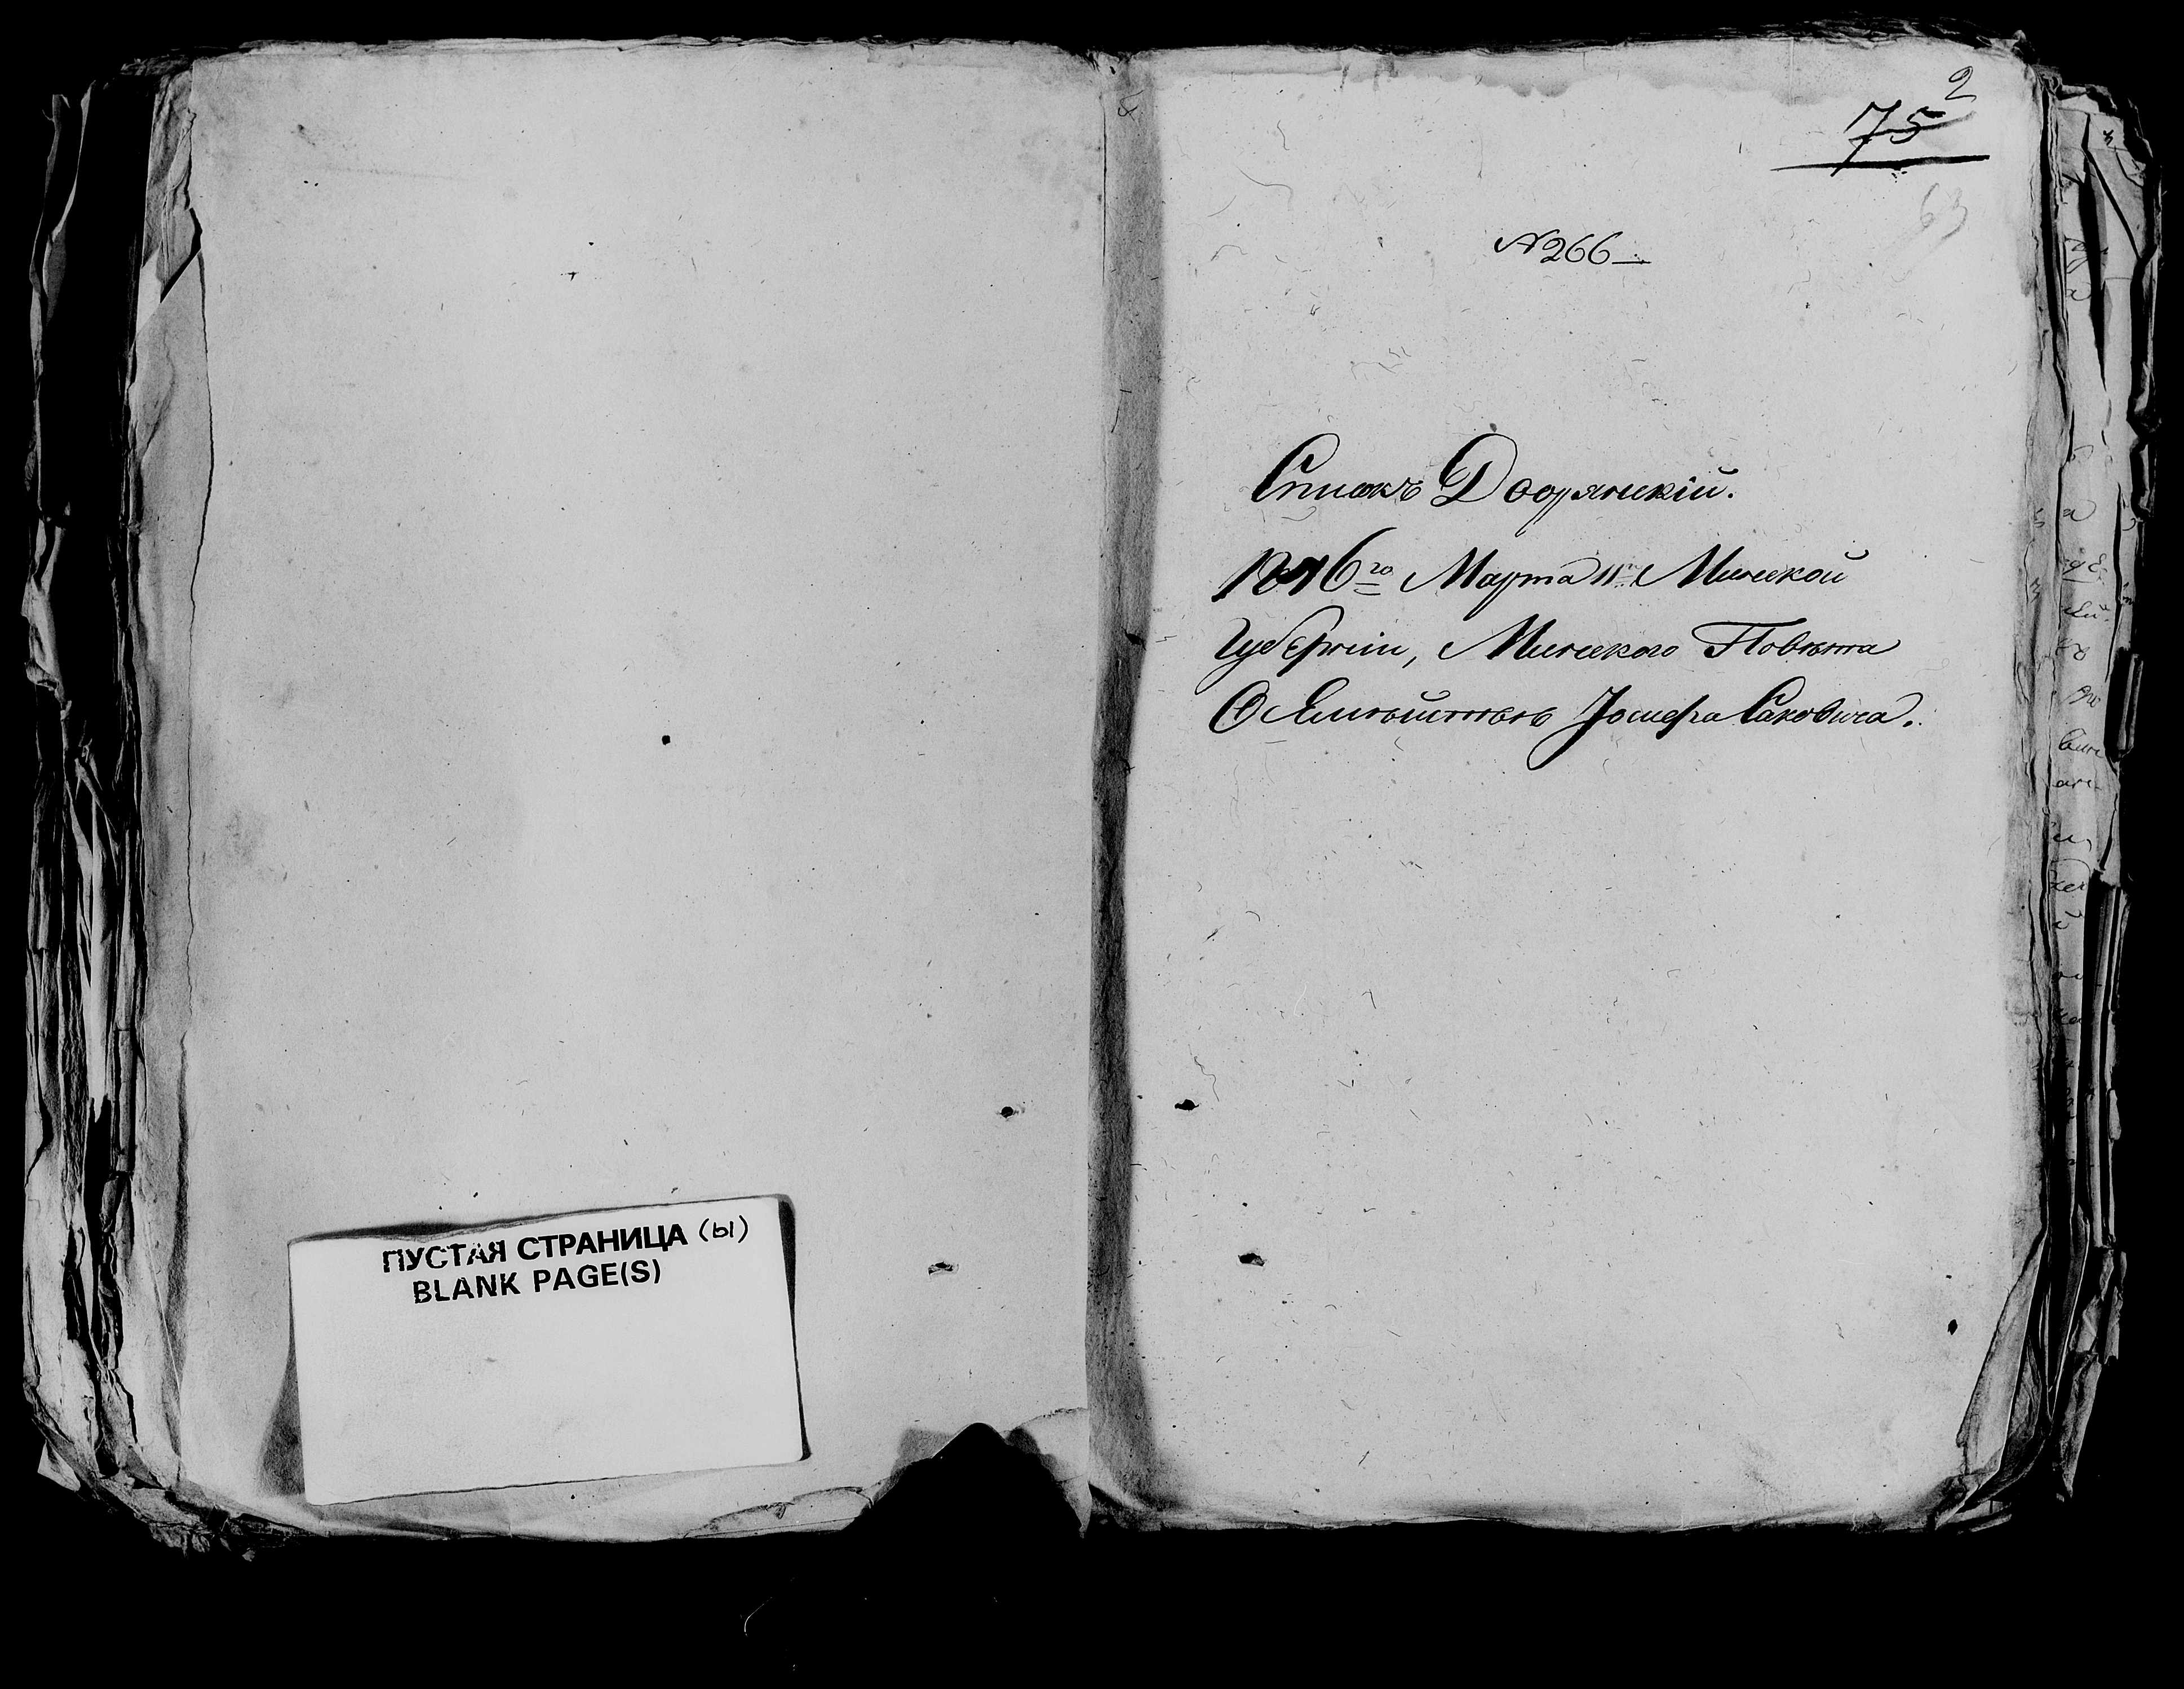 ПУСТАЯ СТРАНИЦА (ы)
BLANK PAGE(S)
2
75
63
№ 266
Списокъ Дворянскій.
1816го Марта 11 Минской
Губерніи, Минского Повѣта
О Іосифа Саковича.